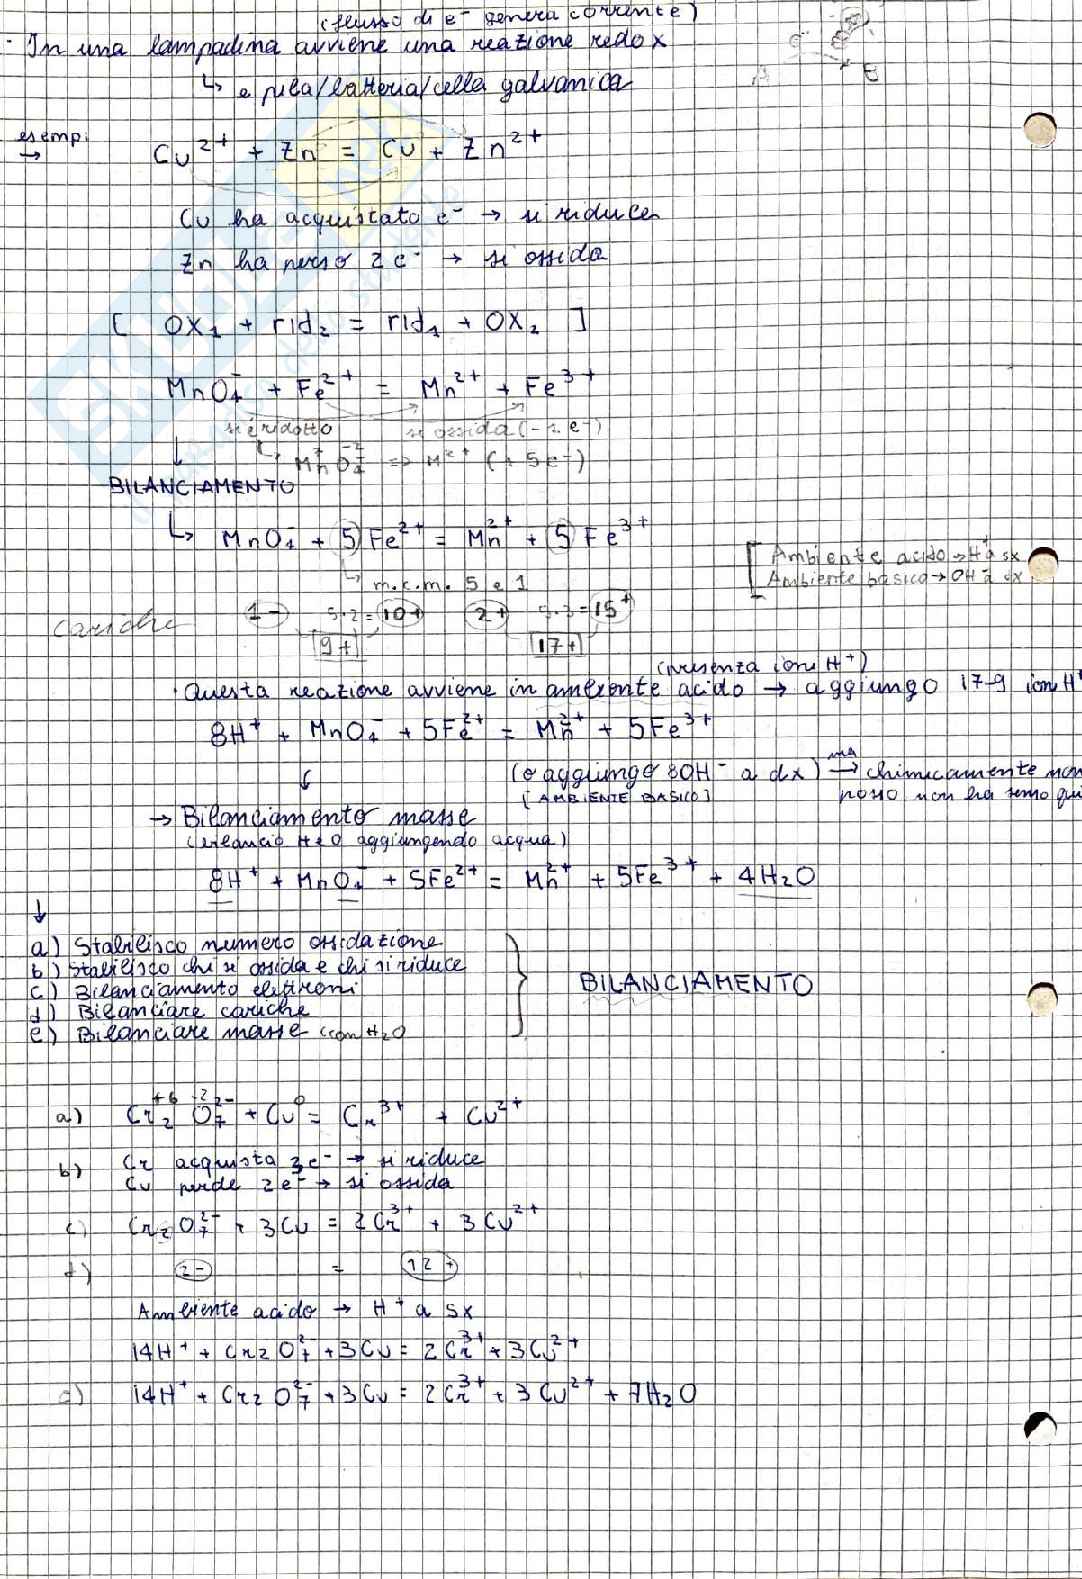 (flusso di e⁻ genera corrente)
· In una lampadina avviene una reazione redox
↳ e pila/batteria/cella galvanica
e⁻
A B
esempi → Cu²⁺ + Zn = Cu + Zn²⁺
Cu ha acquistato e⁻ → si riduce
Zn ha perso 2e⁻ → si ossida
[ OX₁ + rid₂ = rid₁ + OX₂ ]
MnO₄⁻ + Fe²⁺ = Mn²⁺ + Fe³⁺
si è ridotto si ossida (-1 e⁻)
↓ ↳ Mn⁺⁷O₄⁻² => M²⁺ (+ 5e⁻)
BILANCIAMENTO
↳ MnO₄⁻ + 5 Fe²⁺ = Mn²⁺ + 5 Fe³⁺
[ Ambiente acido → H⁺ a sx
Ambiente basico → OH⁻ a dx
↳ m.c.m. 5 e 1
cariche 1- 5·2 = 10+ 2+ 5·3 = 15⁺
9+ 17+
(presenza ioni H⁺)
· Questa reazione avviene in ambiente acido → aggiungo 17-9 ioni H⁺
8H⁺ + MnO₄⁻ + 5Fe²⁺ = Mn²⁺ + 5Fe³⁺
(o aggiungo 8OH⁻ a dx) ma → chimicamente non
[AMBIENTE BASICO] posso non ha senso qui
→ Bilanciamento masse
(bilancio H e O aggiungendo acqua)
8H⁺ + MnO₄⁻ + 5Fe²⁺ = Mn²⁺ + 5Fe³⁺ + 4H₂O
↓
a) Stabilisco numero ossidazione
b) Stabilisco chi si ossida e chi si riduce
c) Bilanciamento elettroni
BILANCIAMENTO
d) Bilanciare cariche
e) Bilanciare masse (con H₂O
a) Cr₂⁺⁶ O₇⁻² ²⁻ + Cu⁰ = Cr³⁺ + Cu²⁺
b) Cr acquista 3e⁻ → si riduce
Cu perde 2e⁻ → si ossida
c) Cr₂O₇²⁻ + 3Cu = 2Cr³⁺ + 3Cu²⁺
d) 2- = 12+
Ambiente acido → H⁺ a sx
14H⁺ + Cr₂O₇²⁻ + 3Cu = 2Cr³⁺ + 3Cu²⁺
e) 14H⁺ + Cr₂O₇²⁻ + 3Cu = 2Cr³⁺ + 3Cu²⁺ + 7H₂O